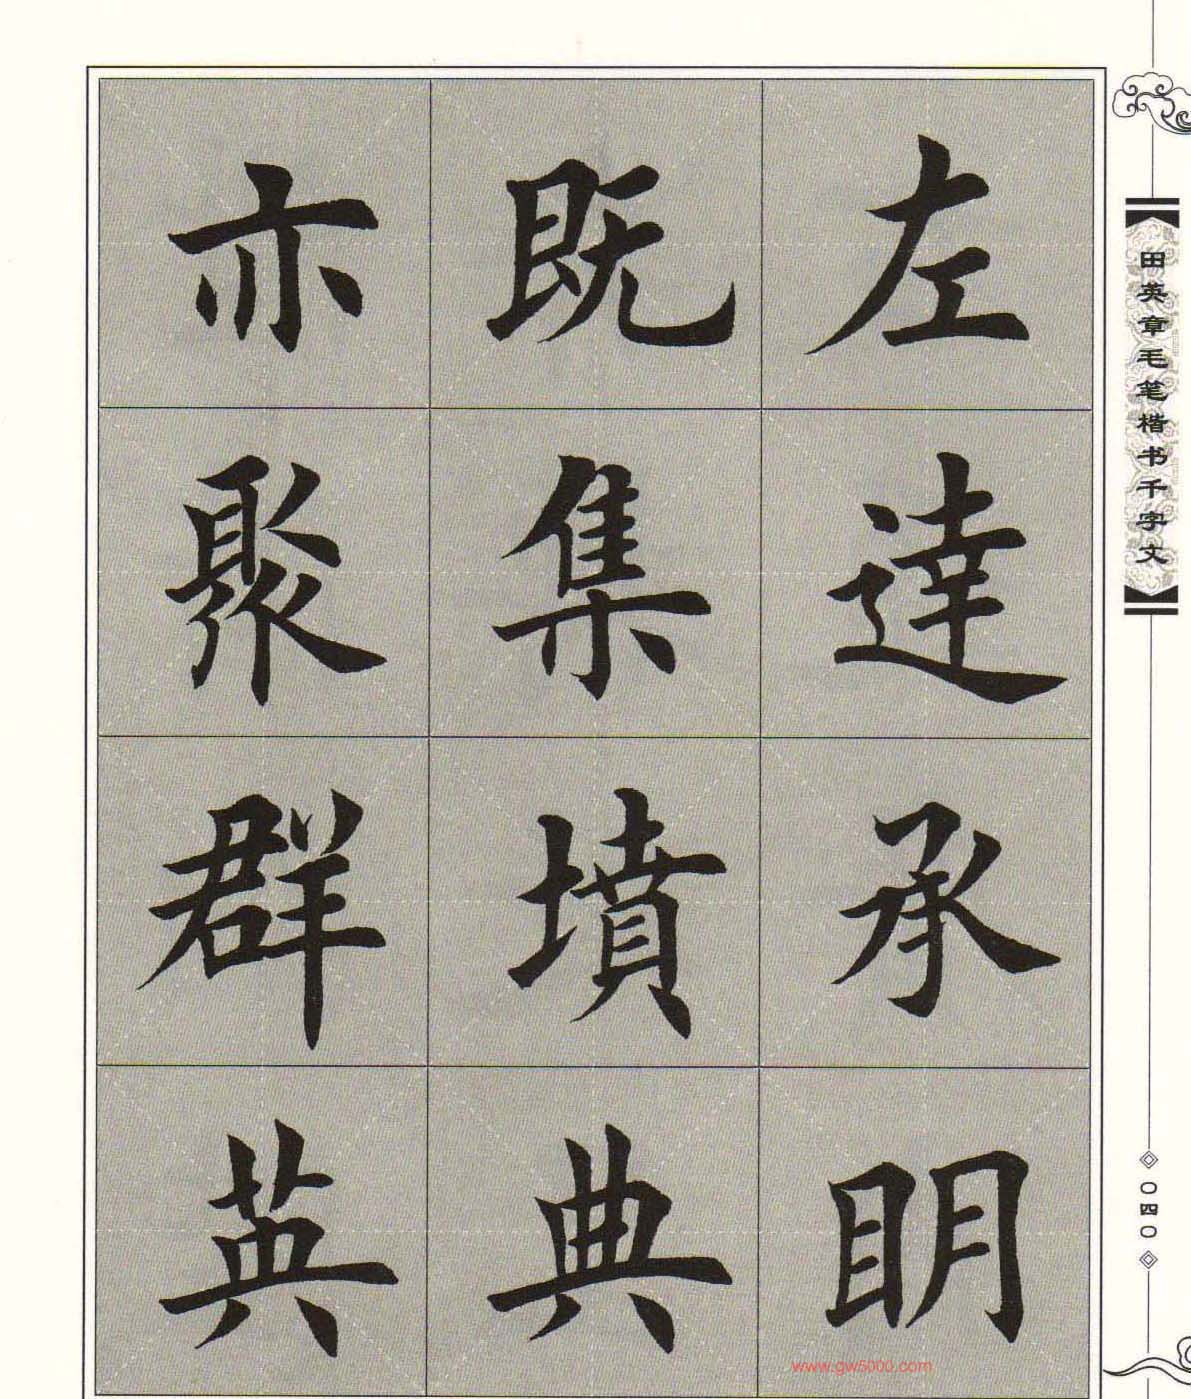 左達承明
既集墳典
亦聚群英
田英章毛笔楷书千字文
〇四〇
www.gw5000.com